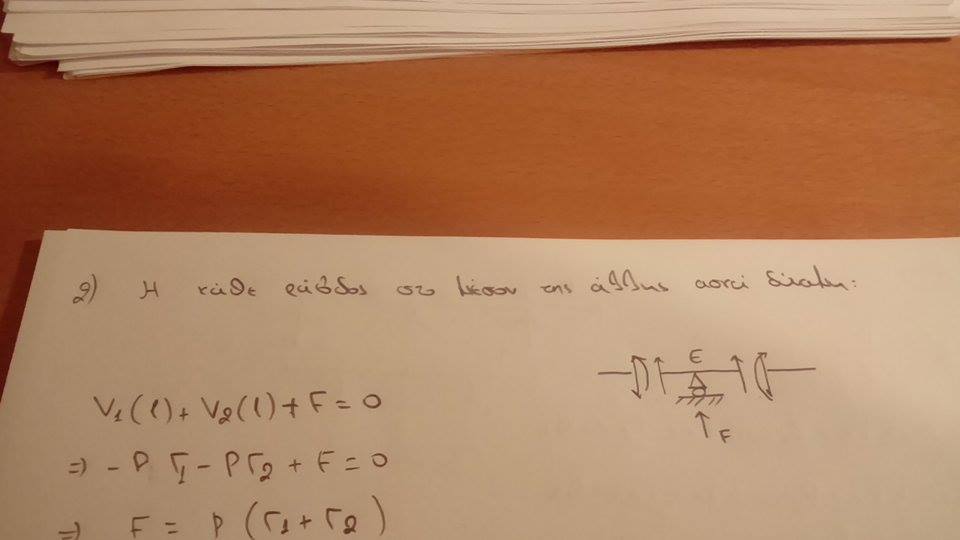 2) Η κάθε ράβδος στο μέσον της άλλης ασκεί δύναμη:
E
F
V₁(l) + V₂(l) + F = 0
⇒ - P r₁ - P r₂ + F = 0
⇒ F = P (r₁ + r₂)